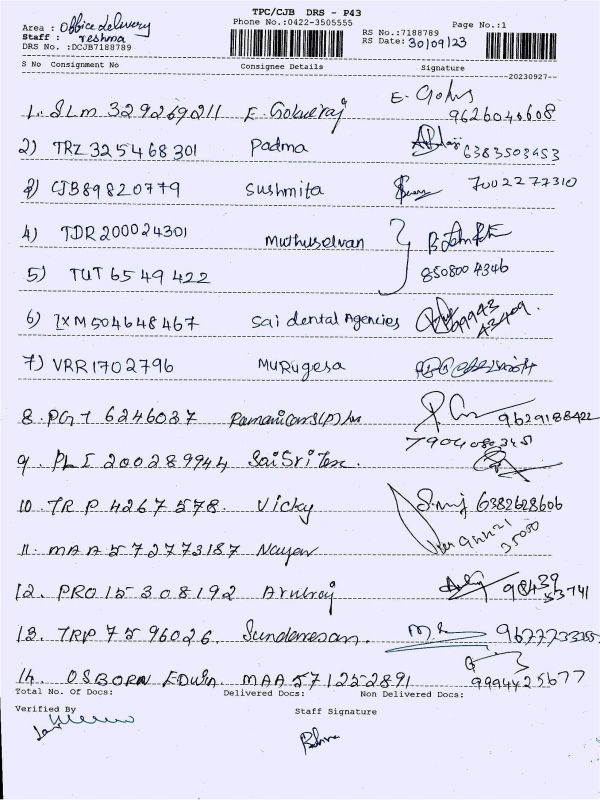 TPC/CJB DRS - P43
Area : Office delivery Phone No.:0422-3505555 Page No.:1
Staff : reshma RS No.:7188789
DRS No. :DCJB7188789 RS Date: 30/09/23
S No Consignment No Consignee Details Signature
20230927--
E. Gokul
1. SLM 329269211 E. Gokulraj 9626040608
2) TRZ 325468301 Padma 6383503453
3) CJB89820779 Sushmita 7002277310
4) TDR200024301 Muthuselvan
5) TUT 6549422 8508004346
6) IXM504648467 Sai dental Agencies 99943 43409.
7) VRR1702796 MuRugesa
8. PGT 6246037 9629188422
9. PLI 200289944 SaiSriTex. 79040803451
10. TRP 4267578. Vicky 6382628606
11. MAA572773187 Nayan
12. PRO15308192 Arulraj 98439 53741
13. TRP 7596026. Sundaresan. 9677733355
14. OSBORN EDWIN. MAA571252891 9994425677
Total No. Of Docs: Delivered Docs: Non Delivered Docs:
Verified By Staff Signature